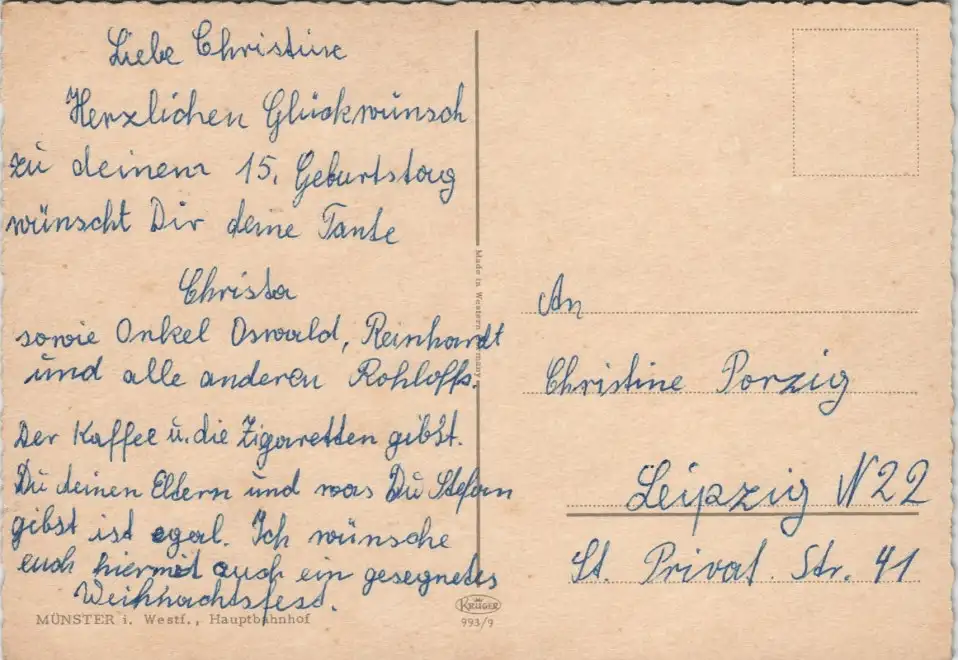 Liebe Christine
Herzlichen Glückwünsch
zu deinem 15. Geburtstag
wünscht Dir deine Tante
Christa
sowie Onkel Oswald, Reinhardt
und alle anderen Rohloffs.
Der Kaffee u. die Zigaretten gibst.
Du deinen Eltern und was Du Stefan
gibst ist egal. Ich wünsche
euch hiermit auch ein gesegnetes
Weihnachtsfest.
MÜNSTER i. Westf., Hauptbahnhof
Made in Western Germany
KRÜGER
993/9
An
Christine Porzig
Leipzig N 22
St. Privat. Str. 41